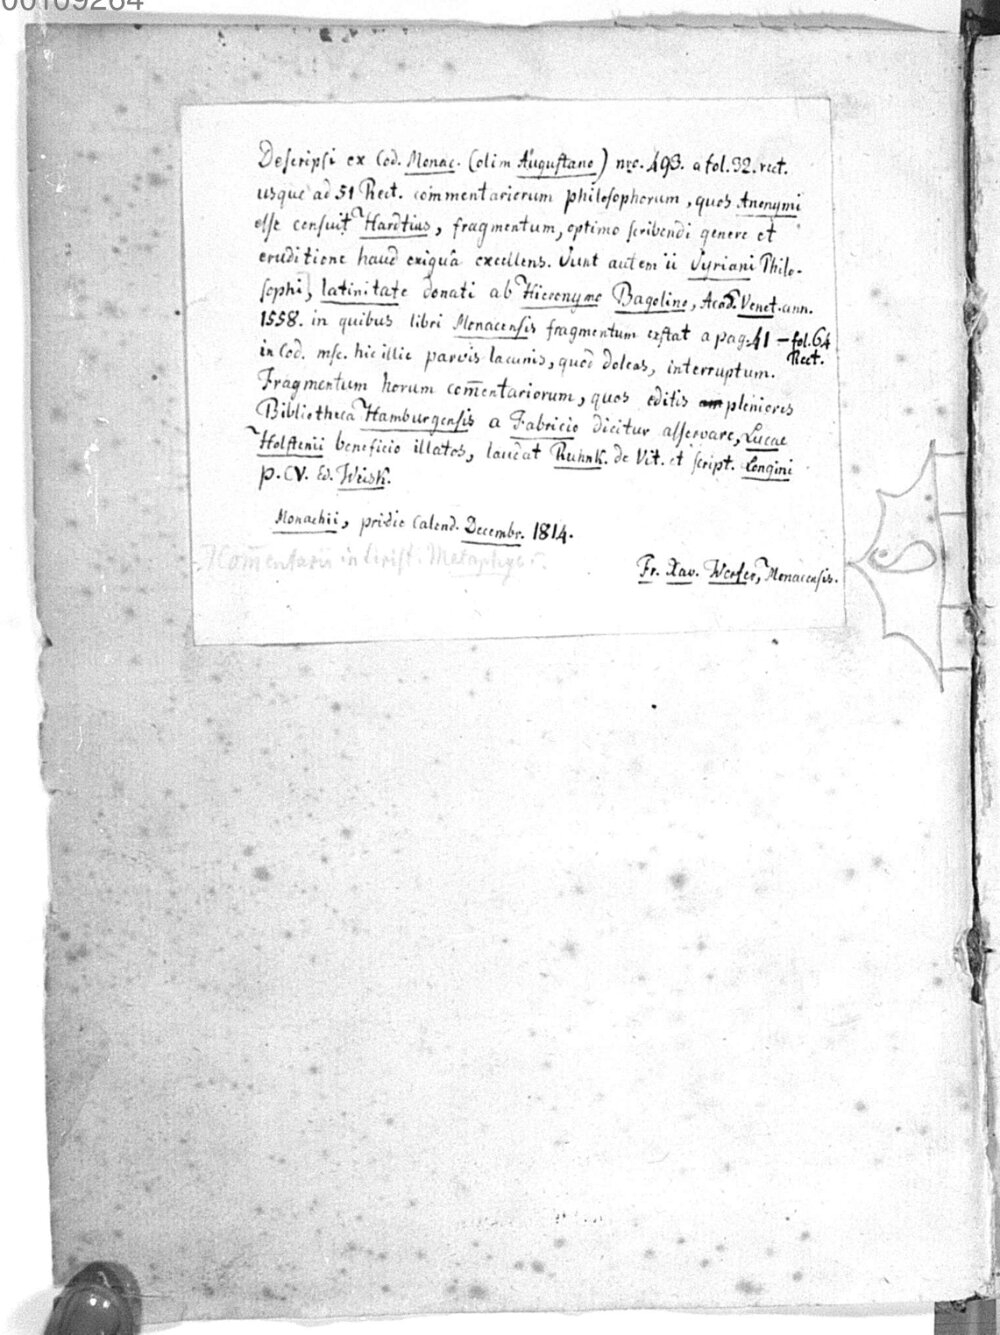 00109264
Descripsi ex Cod. Monac. (olim Augustano) nro. 493. a fol. 32. rect.
usque ad 51 Rect. commentariorum philosophorum, quos Anonymi
esse censuit Hardtius, fragmentum, optimo scribendi genere et
eruditione haud exiguâ excellens. Sunt autem ii Syriani Philo-
sophi, latinitate donati ab Hieronymo Bagolino, Acad. Venet. ann.
1558. in quibus libri Monacensis fragmentum exstat a pag. 41 – fol. 64
Rect.
in Cod. msc. hic illic parvis lacunis, quod doleas, interruptum.
Fragmentum horum com̄entariorum, quos editis pleniores
Bibliotheca Hamburgensis a Fabricio dicitur asservare, Lucae
Holstenii beneficio illatos, laudat Ruhnk. de Vit. et script. Longini
p. CV. Ed. Weisk.
Monachii, pridie Calend. Decembr. 1814.
Kom̄entarii in Arist. Metaphys.
Fr. Xav. Werfer, Monacensis.